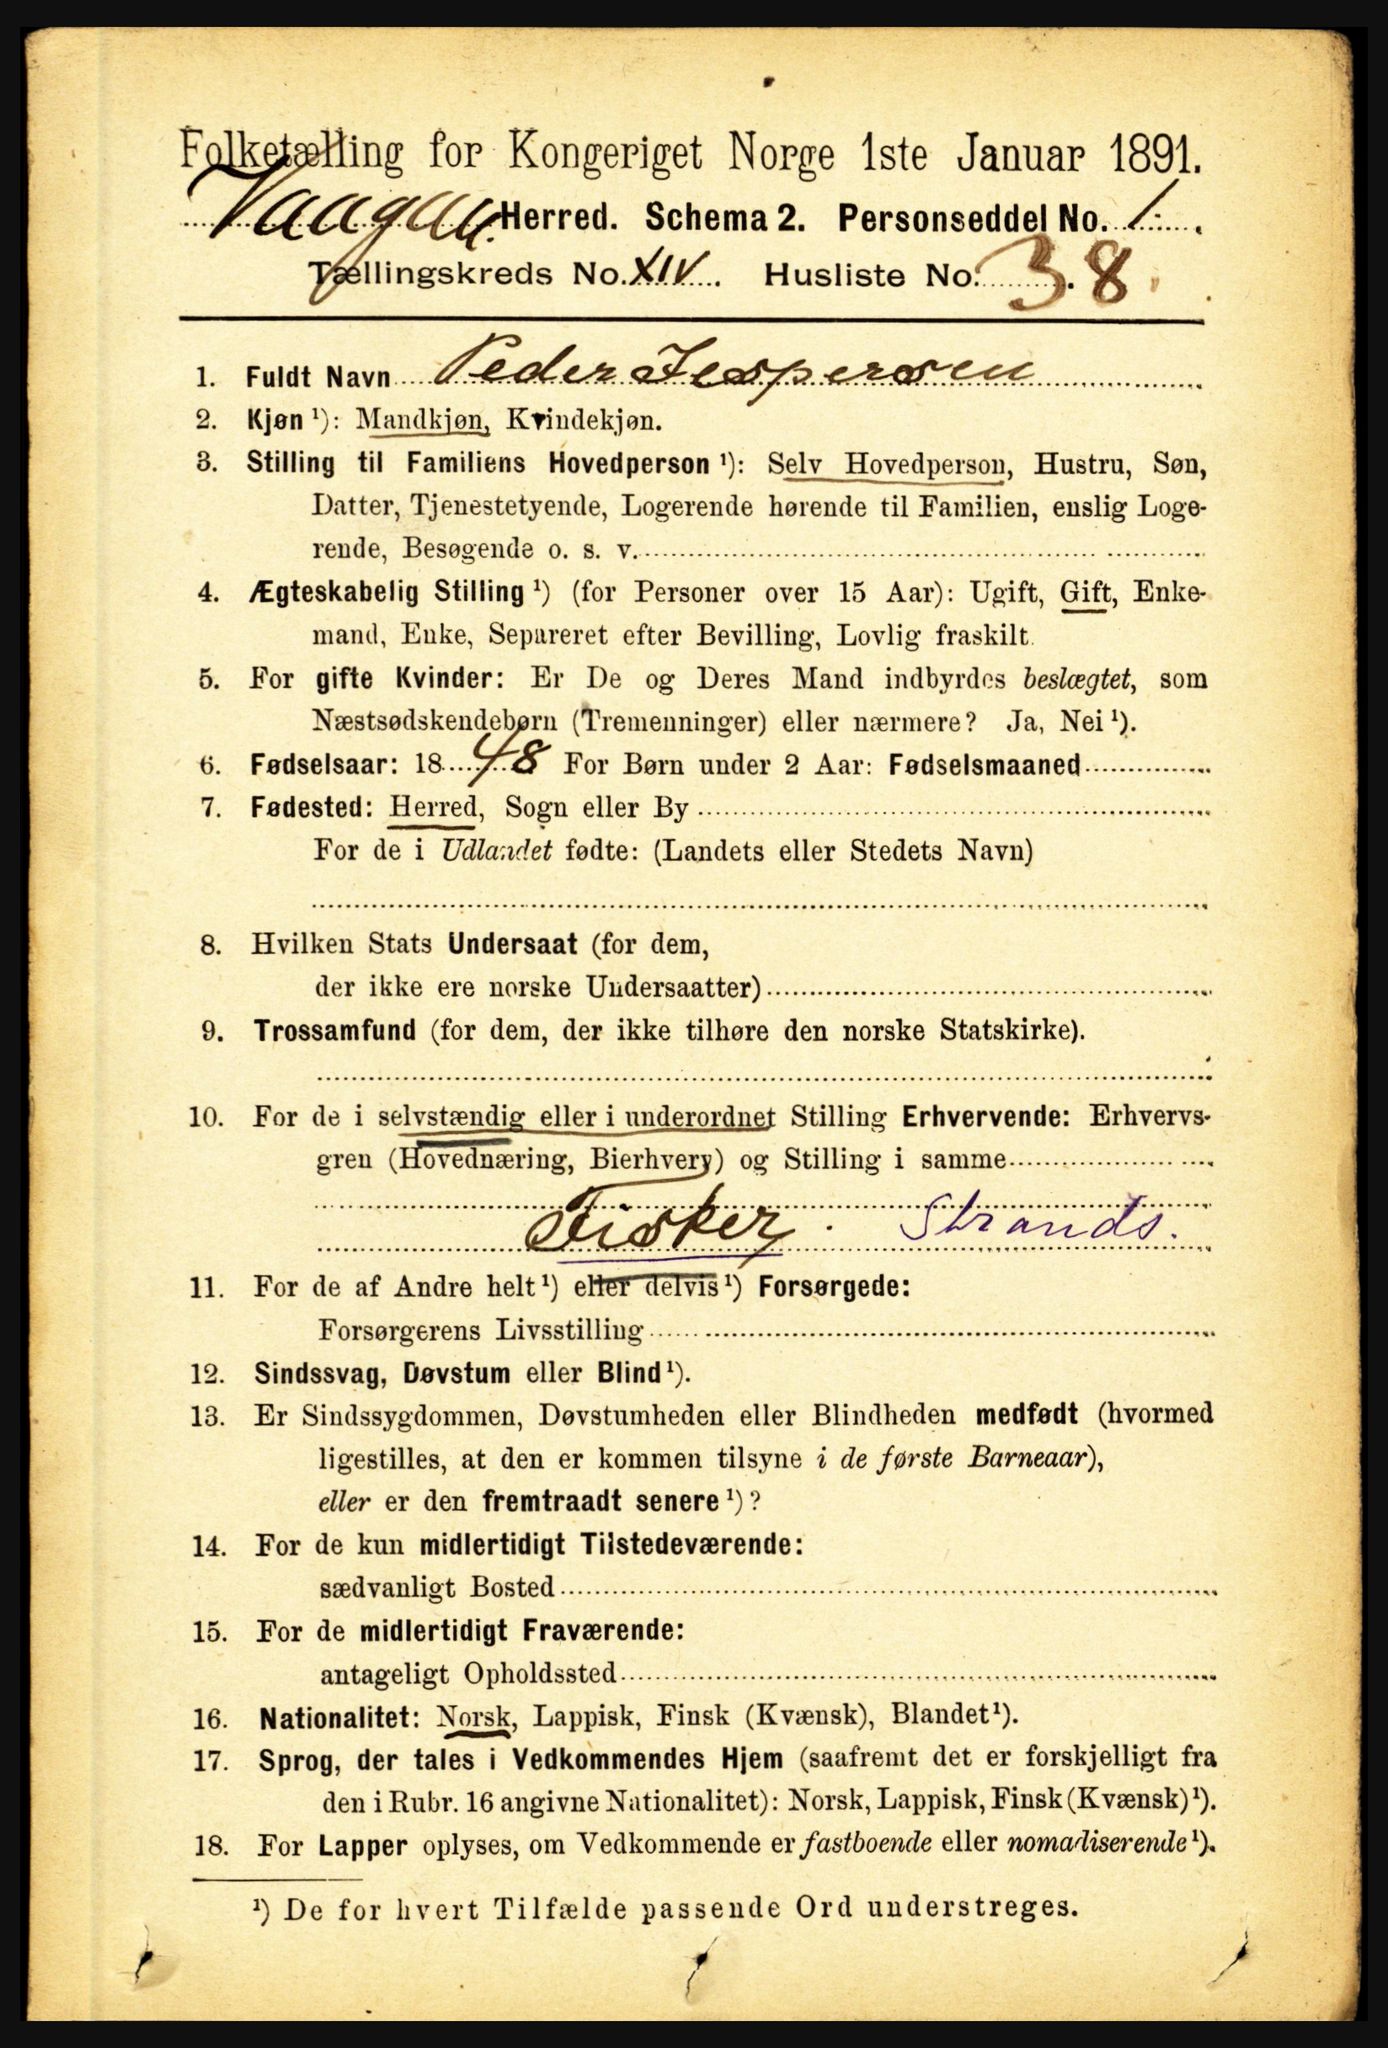 Folketælling for Kongeriget Norge 1ste Januar 1891.
Vaagan Herred. Schema 2. Personseddel No. 1.
Tællingskreds No. XIV. Husliste No. 38.
1. Fuldt Navn Peder Jespersen
2. Kjøn ¹): Mandkjøn, Kvindekjøn.
3. Stilling til Familiens Hovedperson ¹): Selv Hovedperson, Hustru, Søn,
Datter, Tjenestetyende, Logerende hørende til Familien, enslig Loge-
rende, Besøgende o. s. v.
4. Ægteskabelig Stilling ¹) (for Personer over 15 Aar): Ugift, Gift, Enke-
mand, Enke, Separeret efter Bevilling, Lovlig fraskilt.
5. For gifte Kvinder: Er De og Deres Mand indbyrdes beslægtet, som
Næstsødskendebørn (Tremenninger) eller nærmere? Ja, Nei ¹).
6. Fødselsaar: 1848 For Børn under 2 Aar: Fødselsmaaned
7. Fødested: Herred, Sogn eller By
For de i Udlandet fødte: (Landets eller Stedets Navn)
8. Hvilken Stats Undersaat (for dem,
der ikke ere norske Undersaatter)
9. Trossamfund (for dem, der ikke tilhøre den norske Statskirke).
10. For de i selvstændig eller i underordnet Stilling Erhvervende: Erhvervs-
gren (Hovednæring, Bierhverv) og Stilling i samme
Fisker. Strands.
11. For de af Andre helt ¹) eller delvis ¹) Forsørgede:
Forsørgerens Livsstilling
12. Sindssvag, Døvstum eller Blind ¹).
13. Er Sindssygdommen, Døvstumheden eller Blindheden medfødt (hvormed
ligestilles, at den er kommen tilsyne i de første Barneaar),
eller er den fremtraadt senere ¹)?
14. For de kun midlertidigt Tilstedeværende:
sædvanligt Bosted
15. For de midlertidigt Fraværende:
antageligt Opholdssted
16. Nationalitet: Norsk, Lappisk, Finsk (Kvænsk), Blandet ¹).
17. Sprog, der tales i Vedkommendes Hjem (saafremt det er forskjelligt fra
den i Rubr. 16 angivne Nationalitet): Norsk, Lappisk, Finsk (Kvænsk) ¹).
18. For Lapper oplyses, om Vedkommende er fastboende eller nomadiserende ¹).
¹) De for hvert Tilfælde passende Ord understreges.